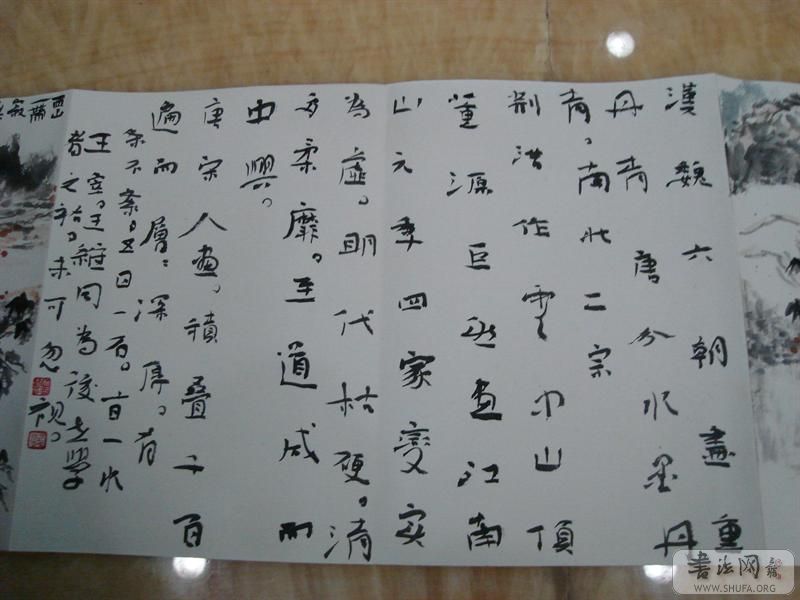 漢魏六朝畫重
丹青唐分水墨丹
青。南北二宗
荆浩作雲中山頂
董源巨然画江南
山元季四家變实
為虚。明代枯硬。清
多柔靡。至道咸而
中興。
唐宋人画。積叠千百
遍而層層深厚。有
条不紊。五日一石。十日一水
王宰。王維同為後之學
者之祖。未可忽視。
書法网
WWW.SHUFA.ORG